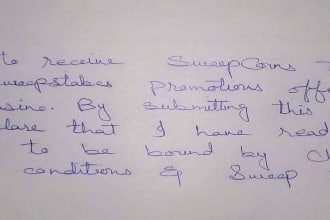 to receive SweepCoins
sweepstakes promotions offe
sino. By submitting this
lare that I have read
to be bound by
conditions & Sweep